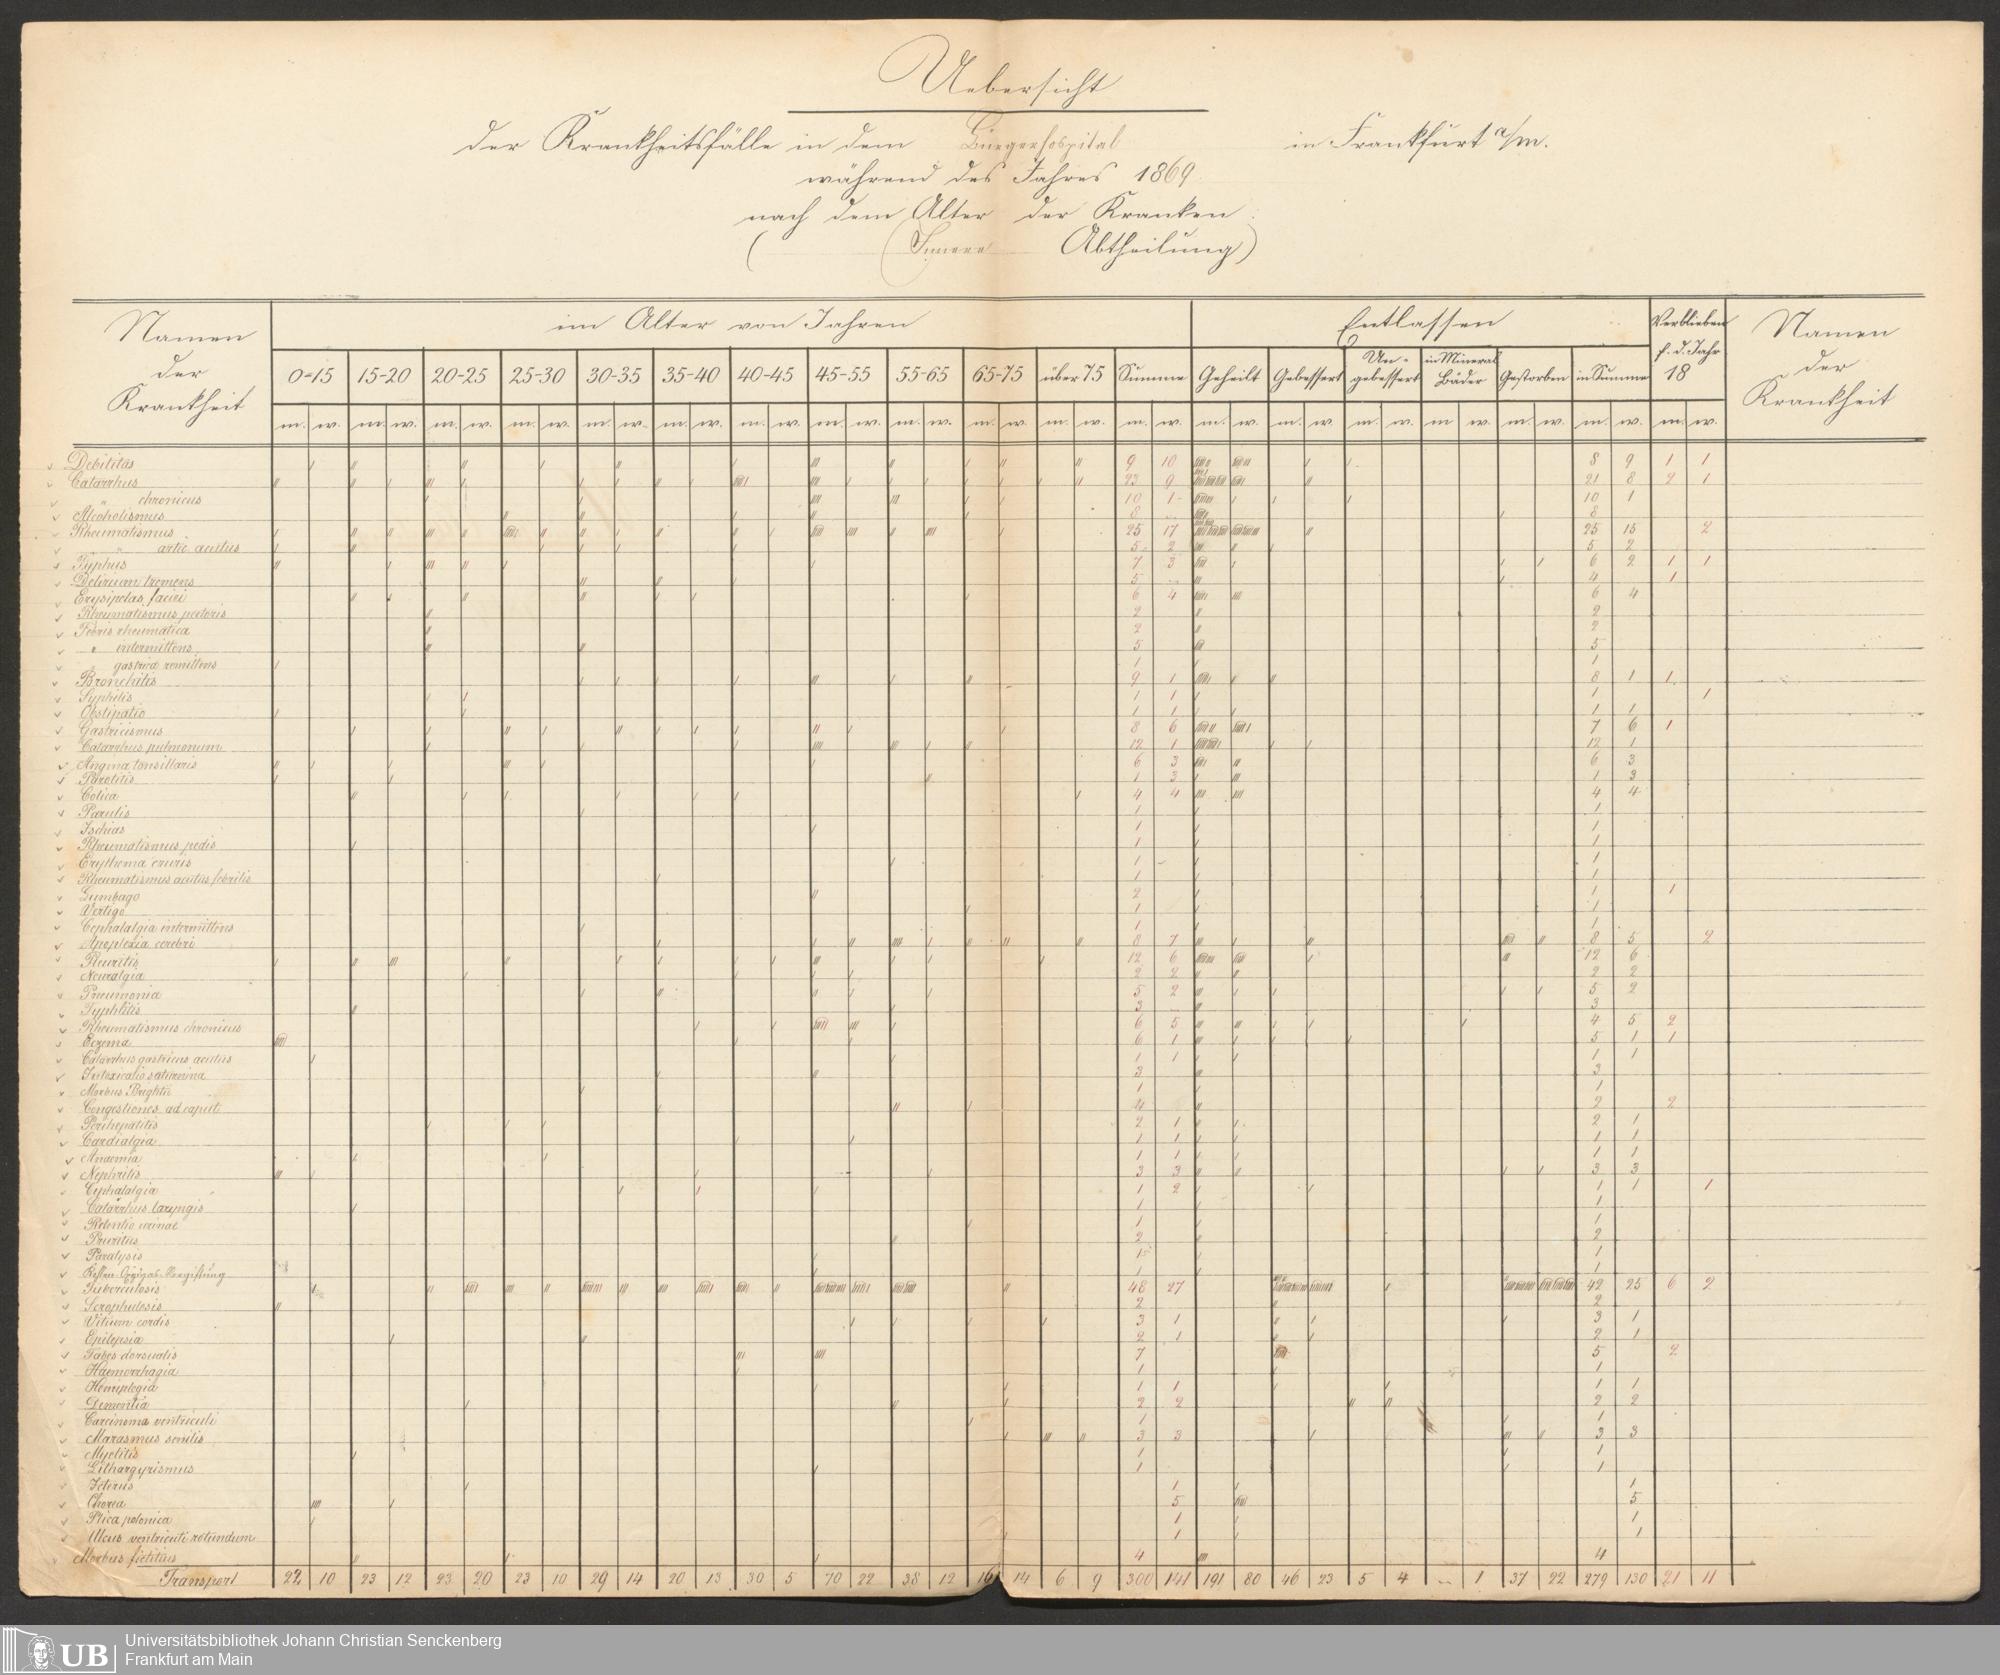 Uebersicht
der Krankheitsfälle in dem Bürgerhospital in Frankfurt a/m.
während des Jahres 1869.
nach dem Alter der Kranken
(Innere Abtheilung)
Namen der Krankheit im Alter von Jahren Entlassen Verblieben f. d. Jahr 18 Namen der Krankheit
0-15 15-20 20-25 25-30 30-35 35-40 40-45 45-55 55-65 65-75 über 75 Summe Geheilt Gebessert Un-gebessert in Mineral Bäder Gestorben in Summe
m. w. m. w. m. w. m. w. m. w. m. w. m. w. m. w. m. w. m. w. m. w. m. w. m. w. m. w. m. w. m w. m. w. m. w. m. w.
Debilitas 9 10 8 9 1 1
Catarrhus 23 9 21 8 2 1
" chronicus 10 1 10 1
Alcoholismus 8 8
Rheumatismus 25 17 25 15 2
" artic. acutus 5 2 5 2
Typhus 7 3 6 2 1 1
Delirium tremens 5 4 1
Erysipelas faciei 6 4 6 4
Rheumatismus pectoris 2 2
Febris rheumatica 2 2
" intermittens 5 5
" gastrica remittens 1 1
Bronchitis 9 1 8 1 1
Syphilis 1 1 1 1
Obstipatio 1 1 1 1
Gastricismus 8 6 7 6 1
Catarrhus pulmonum 12 1 12 1
Angina tonsillaris 6 3 6 3
Parotitis 1 3 1 3
Colica 4 4 4 4
Parulis 1 1
Ischias 1 1
Rheumatismus pedis 1 1
Erythema cruris 1 1
Rheumatismus acutus febrilis 1 1
Lumbago 2 1 1
Vertigo 1 1
Cephalalgia intermittens 1 1
Apoplexia cerebri 8 7 8 5 2
Pleuritis 12 6 12 6
Neuralgia 2 2 2 2
Pneumonia 5 2 5 2
Typhlitis 3 3
Rheumatismus chronicus 6 5 4 5 2
Eczema 6 1 5 1 1
Catarrhus gastricus acutus 1 1 1 1
Intoxicatio saturnina 3 3
Morbus Brightii 1 1
Congestiones ad caput 4 2 2
Perihepatitis 2 1 2 1
Cardialgia 1 1 1 1
Anaemia 1 1 1 1
Nephritis 3 3 3 3
Cephalalgia 1 2 1 1 1
Catarrhus laryngis 1 1
Retentio urinae 1 1
Pruritus 2 2
Paralysis 1 1
1 1
Tuberculosis 48 27 42 25 6 2
Scrophulosis 2 2
Vitium cordis 3 1 3 1
Epilepsia 2 1 2 1
Tabes dorsualis 7 5 2
Haemorrhagia 1 1
Hemiplegia 1 1 1 1
Dementia 2 2 2 2
Carcinoma ventriculi 1 1
Marasmus senilis 3 3 3 3
Myelitis 1 1
Lithargyrismus 1 1
Icterus 1 1
Chorea 5 5
Plica polonica 1 1
Ulcus ventriculi rotundum 1 1
Morbus fictitius 4 4
Transport 22 10 23 12 23 20 23 10 29 14 20 13 30 5 70 22 38 12 16 14 6 9 300 141 191 80 46 23 5 4 1 37 22 279 130 21 11
UB
Universitätsbibliothek Johann Christian Senckenberg
Frankfurt am Main